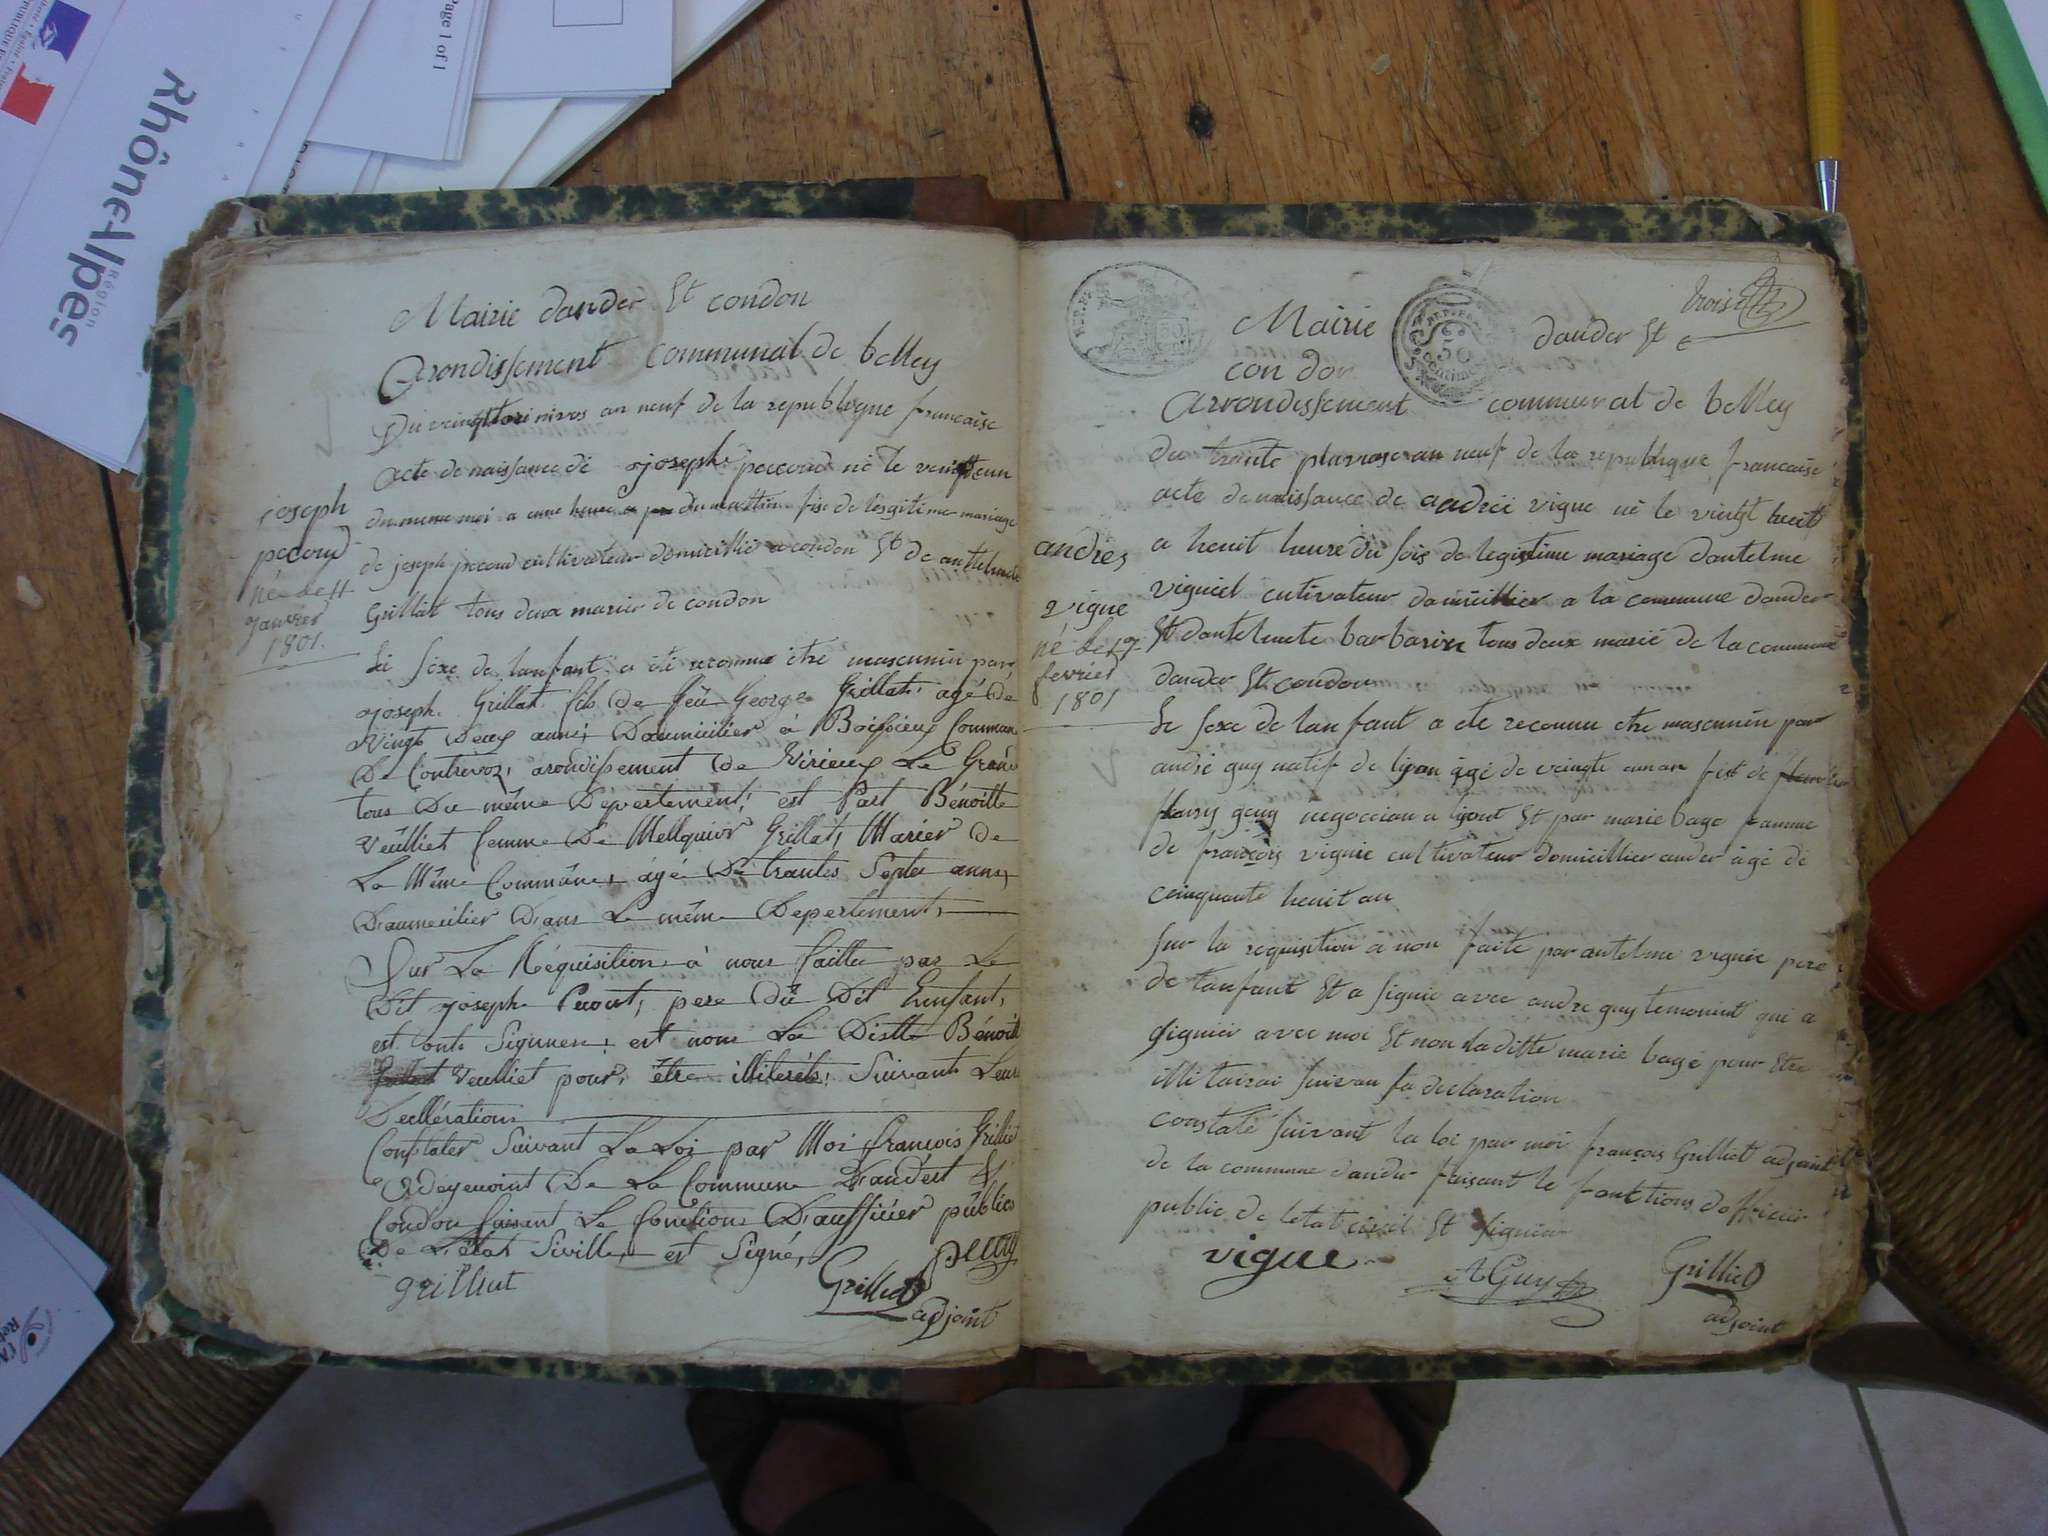 Page 1 of 1
Rhône-Alpes
Région
Mairie dander St condon
Arondissement communal de belley
Du veingttroi nivos an neuf de la republique francaise
acte de naissance de joseph peccoud né le veingtteun
du meme moi a eune heure du mattin fis de lesgitime mariage
de joseph peccoud cultivateur domicillié a condon St de antelmette
Grillat tous deux marier de condon
Le sexe de lanfant a été reconnu être mascunin par
joseph Grillat fils de feü George Grillat, agé de
Vingt Deux anné, Daumicilier à Boissieux Commune
De Contrevoz, arondissement de Virieux Le Grand
tous Du même Département, est Part Bénoitte
Veülliet femme De Mellquior Grillat, Marier de
La Même Commüne, âgé De trantes Septe anns,
Daumecilier Dans Le même Depertement,
Sur La Réquisition à nous faitte par Le
Dit joseph Pecout, pere Dû Dit Enfant,
est onts Signner, est nom La Ditte Bénoitt
Veulliet pour, être illiterés, Suivant Leurs
Decllérations
Constater Suivant La Loi par Moi françois Grilliet
Adejenoint De La Commune Dandert St
Condon faisant Le fonctions Dauffisier publics
De L'état Siville, est Signé,
grilliat
Grilliet
adjoint
joseph
peccoud
né le 11
janvier
1801
Mairie dander St
condon
Arrondissement communal de belley
du trante pluviose an neuf de la republique francaise
acte de naissance de andréé vigne né le vieingt heuit
a heuit heure du sois de legistime mariage dantelme
vigniel cutivateur domicillier a la commune dander
St dantelmete barbarin tous deux marié de la commune
dander St condon
Le sexe de lanfant a ete reconnu etre mascunin par
andré guy natif de lion âgé de veingte eun an fist de
fleury guy negocian a liont St par marie bage famme
de françois vignie cultivateur domicillier ander âgé de
ceinquante heuit an
sur la requisition a non faite par antelme vignie pere
de lanfant St a signie avec andre guy temonint qui a
signier avec moi St non la ditte marie bagé pour etre
illitairai suivan sa declaration
constaté suivant la loi par moi françois Grilliet adjoint
de la commune dander faisant le fonctions dofficier
public de letat civil St signier
vigne
A Guy
Grilliet
adjoint
andrés
vigne
né le 17
fevrier
1801
50